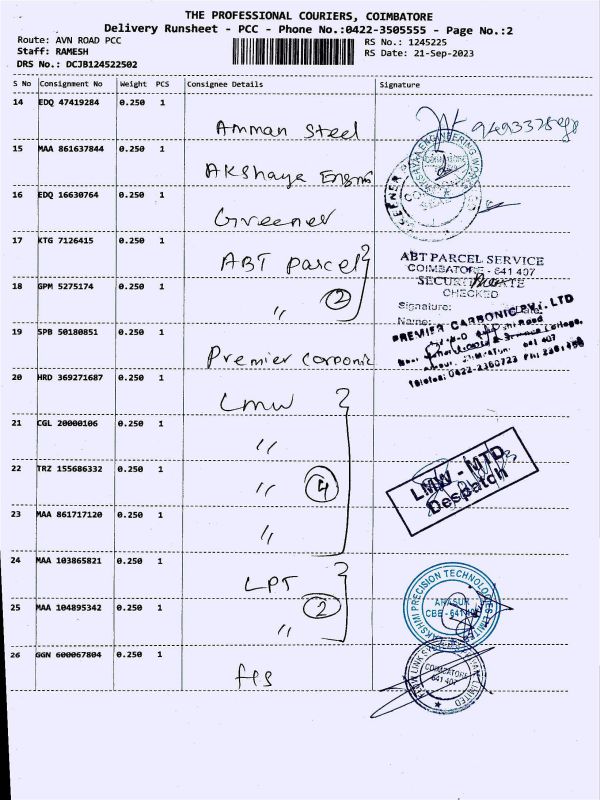 THE PROFESSIONAL COURIERS, COIMBATORE
Delivery Runsheet - PCC - Phone No.:0422-3505555 - Page No.:2
Route: AVN ROAD PCC
RS No.: 1245225
Staff: RAMESH
RS Date: 21-Sep-2023
DRS No.: DCJB124522502
S No Consignment No Weight PCS Consignee Details Signature
14 EDQ 47419284 0.250 1
Amman Steel
15 MAA 861637844 0.250 1
Akshaya Engns
16 EDQ 16630764 0.250 1
Greener
17 KTG 7126415 0.250 1
ABT parcel
18 GPM 5275174 0.250 1
〃 2
19 SPB 50180851 0.250 1
Premier carbonic
20 HRD 369271687 0.250 1
LMW
21 CGL 20000106 0.250 1
〃
22 TRZ 155686332 0.250 1
〃 4
23 MAA 861717120 0.250 1
〃
24 MAA 103865821 0.250 1
LPT
25 MAA 104895342 0.250 1
2
〃
26 GGN 600067804 0.250 1
ENGINEERING WORKS
GREENER
ABT PARCEL SERVICE
COIMBATORE - 641 407
CHECKED
Signature:
Name:
PREMIER CARBONIC PVT. LTD
641 407
LMW - MTD
Despatch
LAKSHMI PRECISION TECHNOLOGIES LIMITED
ARASUR
CBE - 641 407
COIMBATORE
641 407
LIMITED